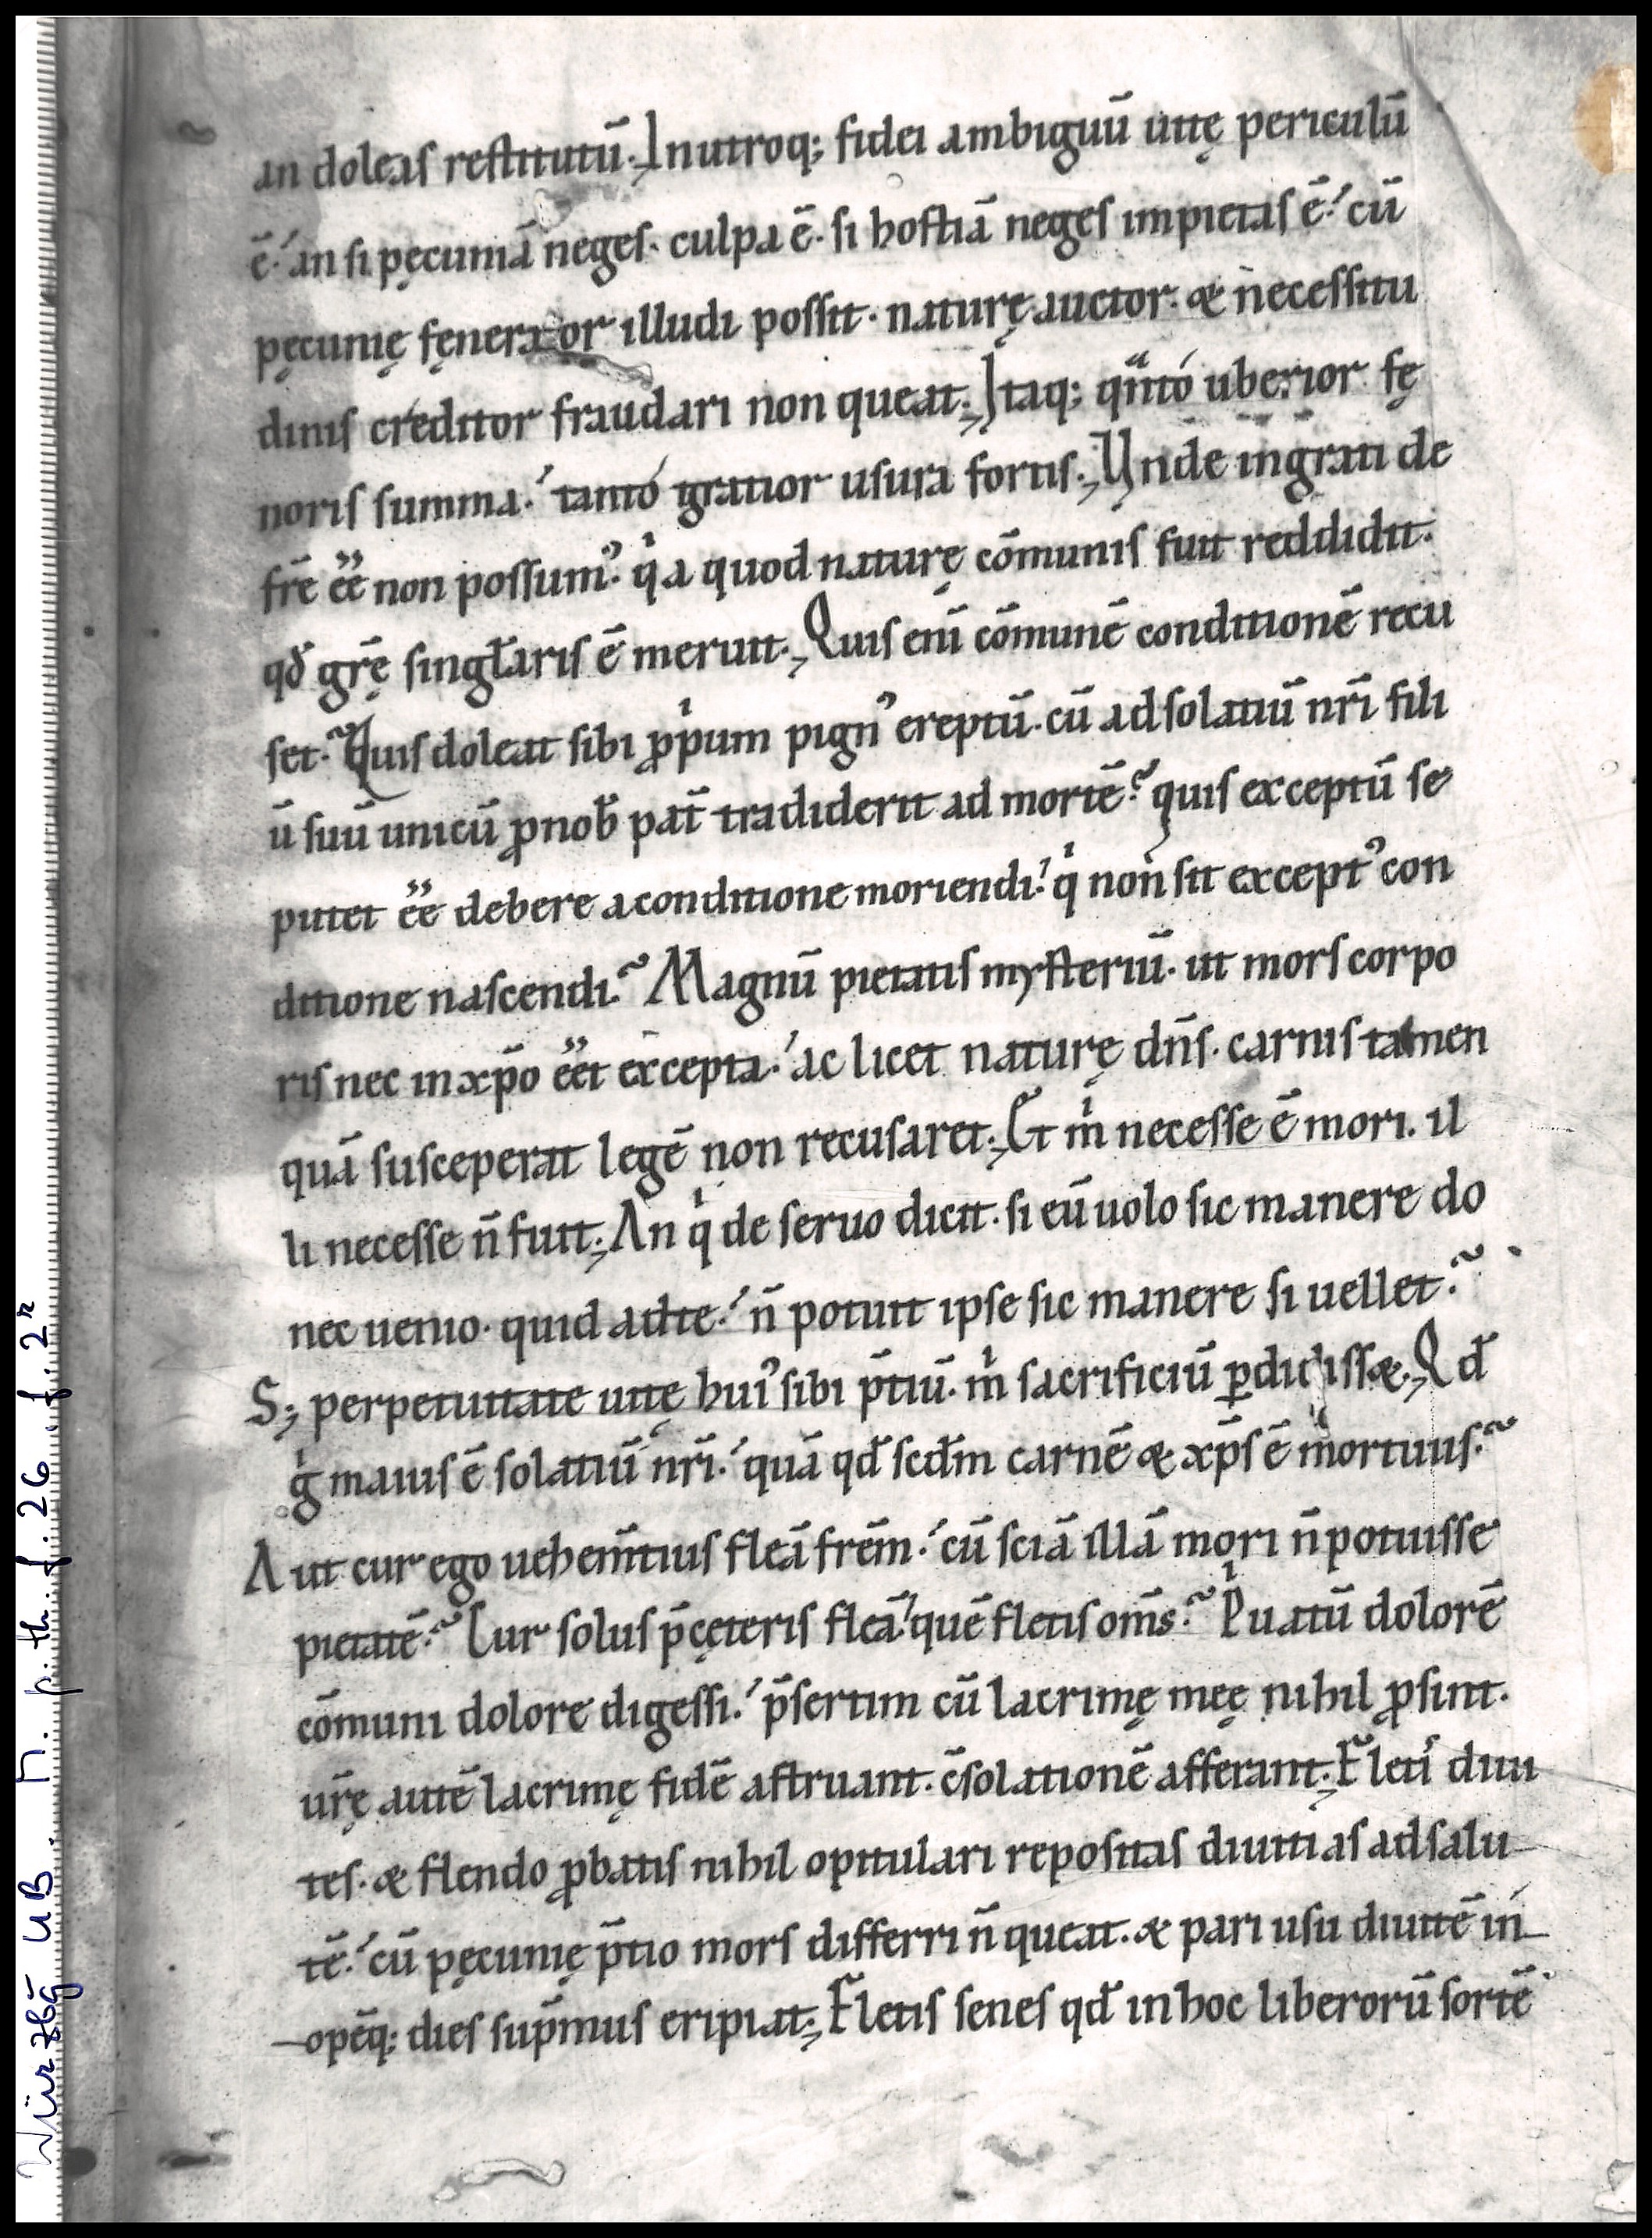 an doleaſ reſtitutū. Inutroq; fidei ambiguū uitę periculū
ē. an ſi pęcuniā negeſ. culpa ē. ſi hoſtiā negeſ impietaſ ē. cū
pęcunię fęnerator illudi poſſit. naturę auctor. & neceſſitu
diniſ creditor fraudari non queat. Itaq; qͣnto uberior fę
noriſ ſumma. tanto gratior uſura ſortiſ. Unde ingrati de
fr̄e ēē non poſſumꝰ. qͥa quod naturę cōmuniſ fuit reddidit.
qd̄ gr̄ę ſingl̄ariſ ē meruit. Quiſ eni̅ cōmunē conditionē recu
ſet. Quiſ doleat ſibi ꝓpͥum pignꝰ ereptū. cū adſolatiū nr̄i fili
ū ſuū unicū ꝓnob̄ pat̄ tradiderit ad mortē. quiſ exceptū ſe
putet ēē debere aconditione moriendi. qͥ non ſit exceptꝰ con
ditione naſcendi. Magnū pietatiſ myſteriū. ut morſ corpo
riſ nec inxp̄o ēēt excepta. ac licet naturę dn̄ſ. carniſ tamen
quā ſuſceperat legē non recuſaret. Et mͥ neceſſe ē mori. il
li neceſſe n̄ fuit. An qͥ de ſeruo dicit. ſi eū uolo ſic manere do
nec uenio. quid adte. n̄ potuit ipſe ſic manere ſi uellet.
S; perpetuitate uitę huiꝰ ſibi p̄tiū. mͥ ſacrificiū ꝑdidiſſ&. Qd̄
gͥ maiuſ ē ſolatiū nr̄i. quā qd̄ ſcd̄m carnē & xp̄ſ ē mortuuſ.
Aut cur ego uehem̄tiuſ fleā frēm. cū ſciā illā mori n̄ potuiſſe
pietatē. Cur ſoluſ p̄cęteriſ fleā. quē fletiſ om̄s. Pͥuatū dolorē
cōmuni dolore digeſſi. p̄ſertim cū lacrimę meę nihil ꝓſint.
ur̄ę autē lacrimę fidē aſtruant. c̄ſolationē afferant. Fletiſ diui
teſ. & flendo ꝓbatiſ nihil opitulari repoſitaſ diuitiaſ adſalu
tē. cū pęcunię p̄tio morſ differri n̄ queat. & pari uſu diuitē in
opēq; dieſ ſup̄muſ eripiat. Fletiſ ſeneſ qd̄ inhoc liberorū ſortē
Würzbg UB. M. p. th. f. 26 f. 2r